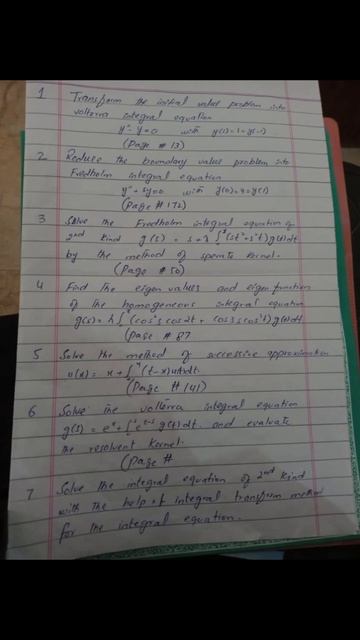 1 Transform the initial value problem into
volterra integral equation
y'' - y = 0 with y(1)=1=y(-1)
(Page # 13)
2 Reduce the boundary value problem into
Fredholm integral equation
y'' + λy=0 with y(0)=0=y(1)
(Page # 172)
3 Solve the Fredholm integral equation of
2nd kind g(s) = s+λ∫(st²+s²t)g(t)dt
by the method of sperate kernel.
(Page # 50)
4 Find the eigen values and eigen function
of the homogeneous integral equation
g(s)=λ∫(cos²s cos2t + cos3s cos³t)g(t)dt.
(Page # 87
5 Solve the method of successive approximation
u(x)= x+∫(t-x)u(t)dt.
(Page # 141)
6 Solve the volterra integral equation
g(s)= e^s+∫e^s-t g(t)dt. and evaluate
the resolvent kernel.
(Page #
7 Solve the integral equation of 2nd kind
with the help of integral transform method
for the integral equation.